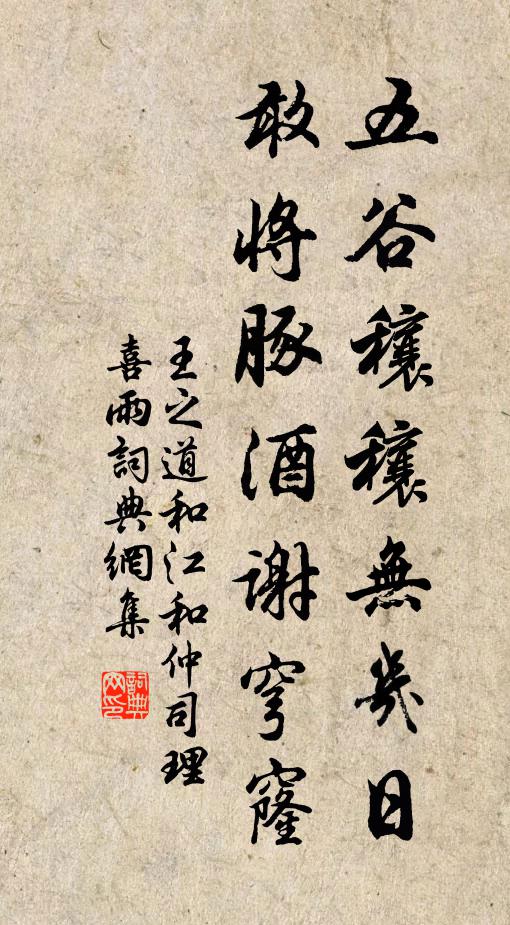 五谷穰穰無幾日
敢將豚酒谢穹窿
王之道和江和仲司理
喜雨詞典網集
詞典网印